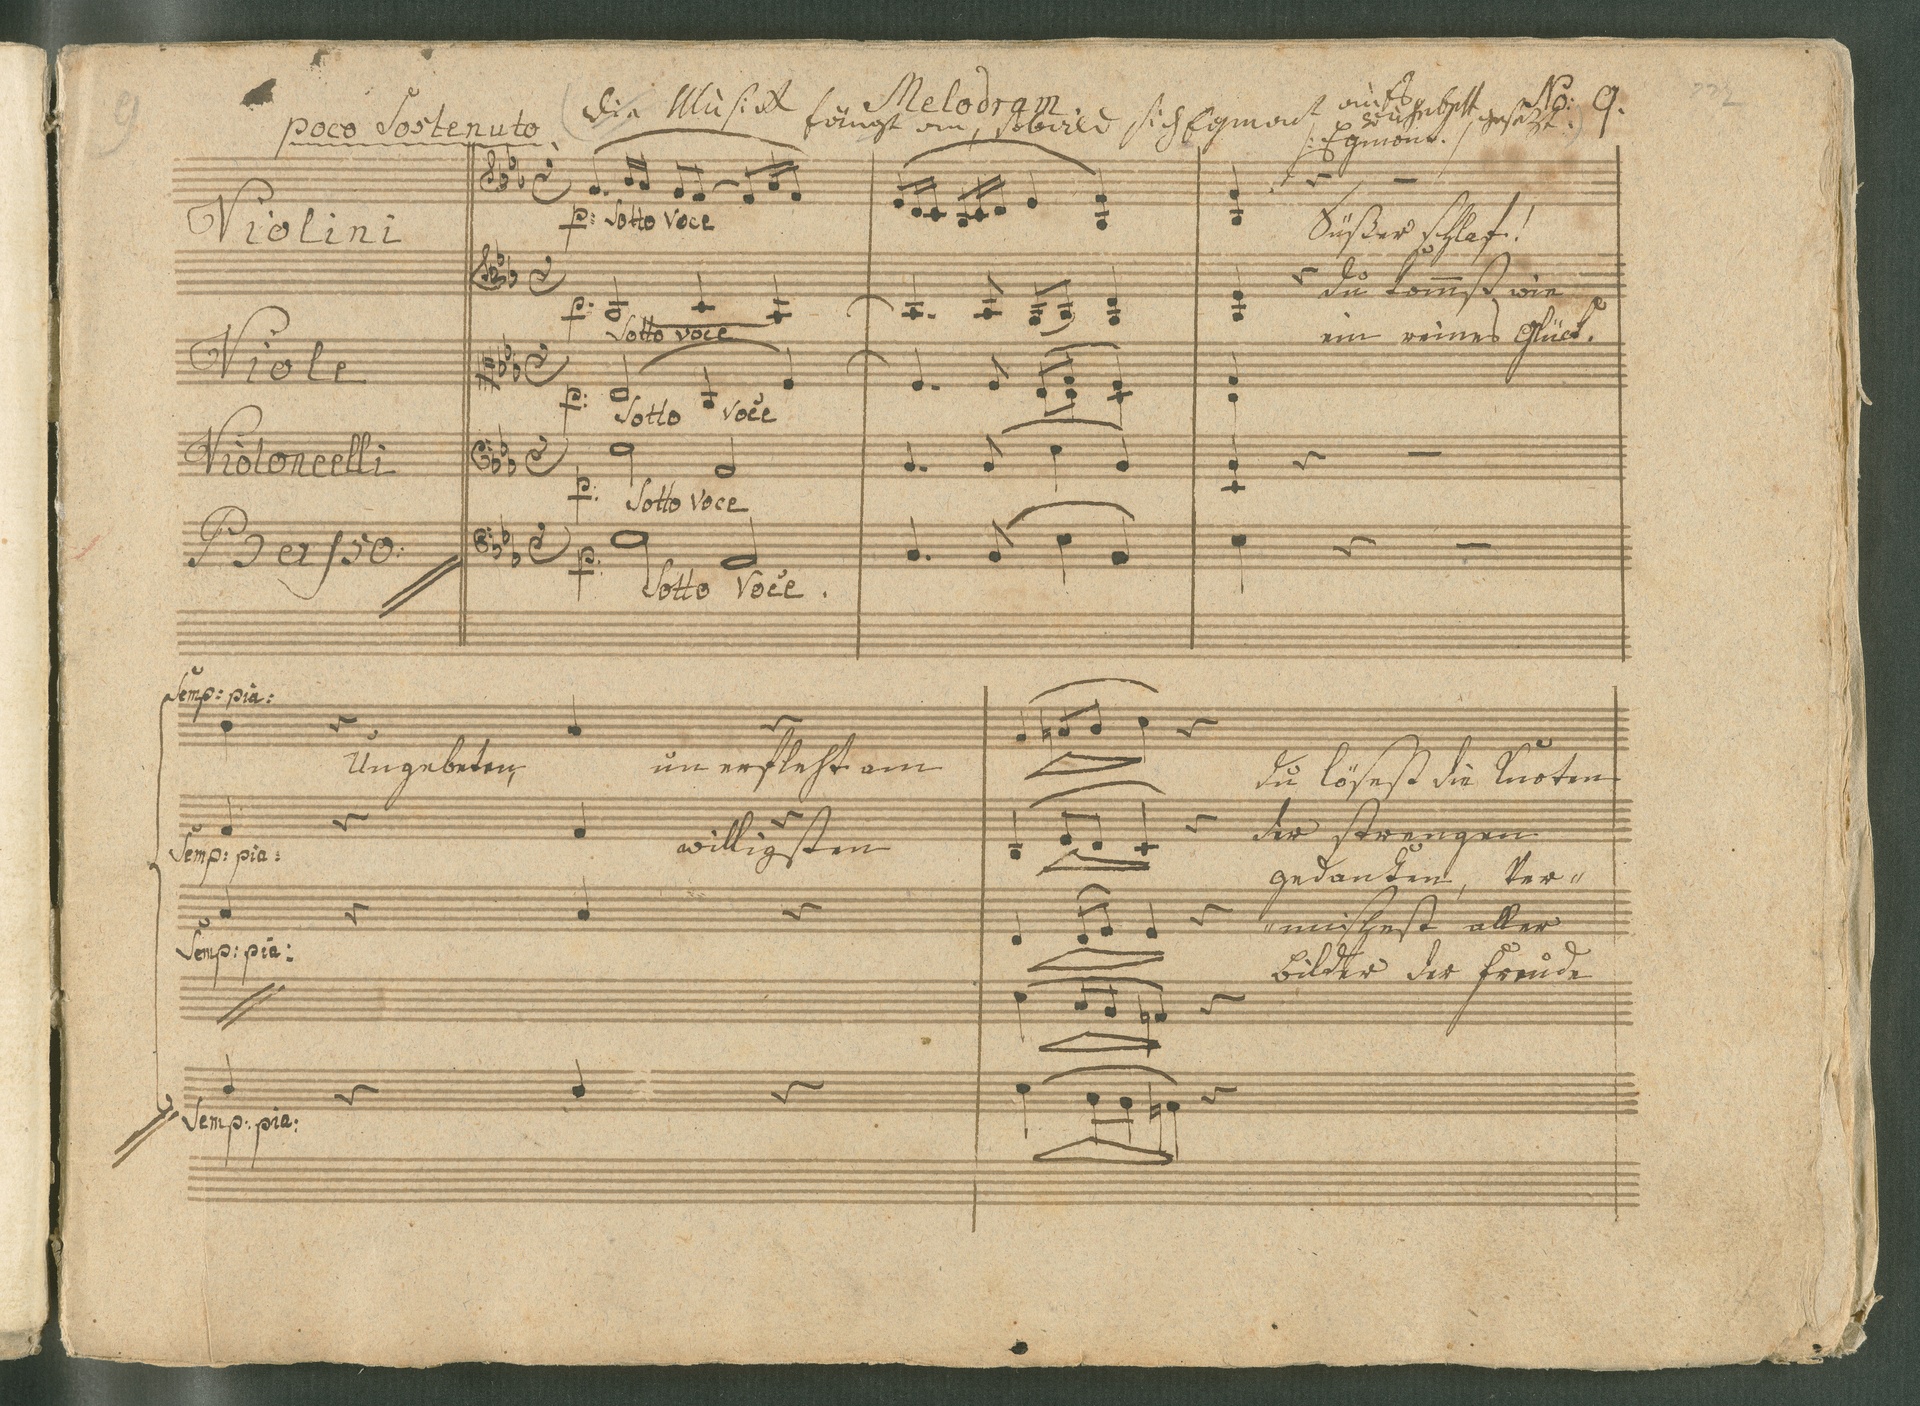 9
Melodram
No: 9.
poco Sostenuto
Die Musick fängt an, sobald sich Egmont aufs Ruhebett gesetzt.
/: Egmont.
Violini
p: Sotto voce
Süßer Schlaf!
du kommst wie
p: Sotto voce
ein reines Glück.
Viole
p: Sotto voce
Violoncelli
p: Sotto voce
Basso.
p: Sotto Voce.
Semp: pia:
Ungebeten, unerfleht am
du lösest die Knoten
willigsten
der strengen
Semp: pia:
gedanken, Ver-
-mischest aller
Semp: pia:
Bilder der Freude
Semp: pia: